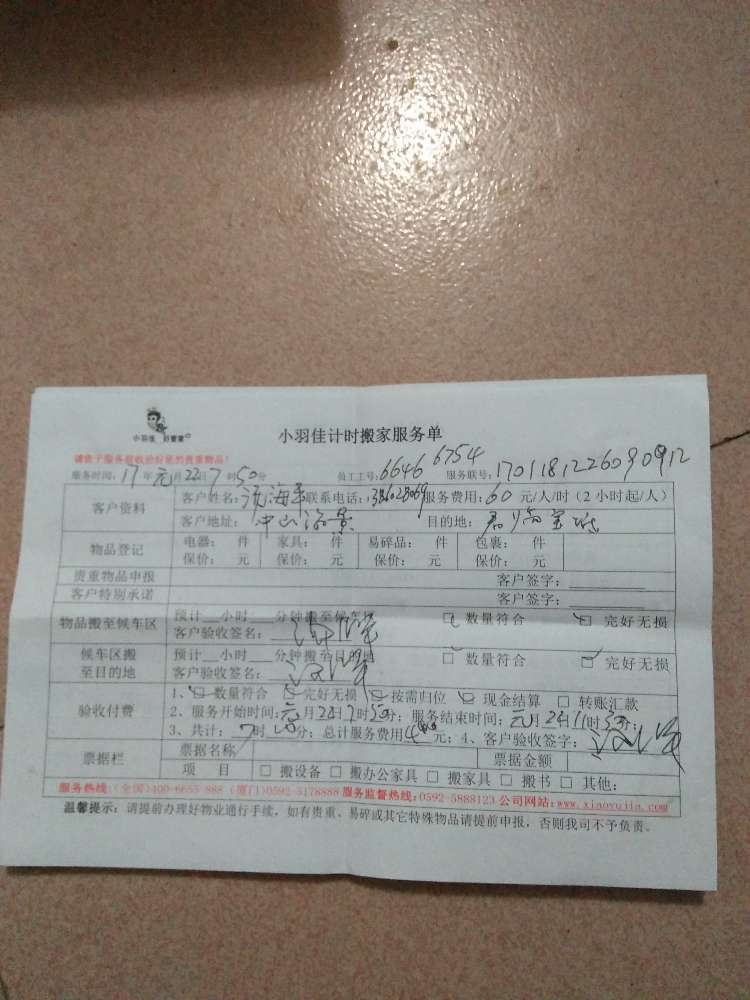 小羽佳 好管家
小羽佳计时搬家服务单
请在服务前收拾好您的贵重物品!
服务时间: 17年元月22日7时50分 员工工号: 6646 6754 服务联号: 1701181226090912
客户资料 客户姓名: 海 联系电话: 服务费用: 60 元/人/时(2小时起/人)
客户地址: 中山 景 目的地:
物品登记 电器: 件 家具: 件 易碎品: 件 包裹: 件
保价: 元 保价: 元 保价: 元 保价: 元
贵重物品申报 客户签字:
客户特别承诺 客户签字:
物品搬至候车区 预计__小时__分钟搬至候车区 □ 数量符合 □ 完好无损
客户验收签名:
候车区搬至目的地 预计__小时__分钟搬至目的地 □ 数量符合 □ 完好无损
客户验收签名:
验收付费 1、□ 数量符合 □ 完好无损 □ 按需归位 □ 现金结算 □ 转账汇款
2、服务开始时间: 月 日7时50分; 服务结束时间: 元月 日11时 分;
3、共计: 7时 分; 总计服务费用 元; 4、客户验收签字:
票据栏 票据名称 票据金额
项 目 □ 搬设备 □ 搬办公家具 □ 搬家具 □ 搬书 □ 其他:
服务热线:(全国)400-6655-888 (厦门)0592-5178888 服务监督热线:0592-5888123 公司网站:www.xiaoyujia.com
温馨提示: 请提前办理好物业通行手续,如有贵重、易碎或其它特殊物品请提前申报,否则我司不予负责。